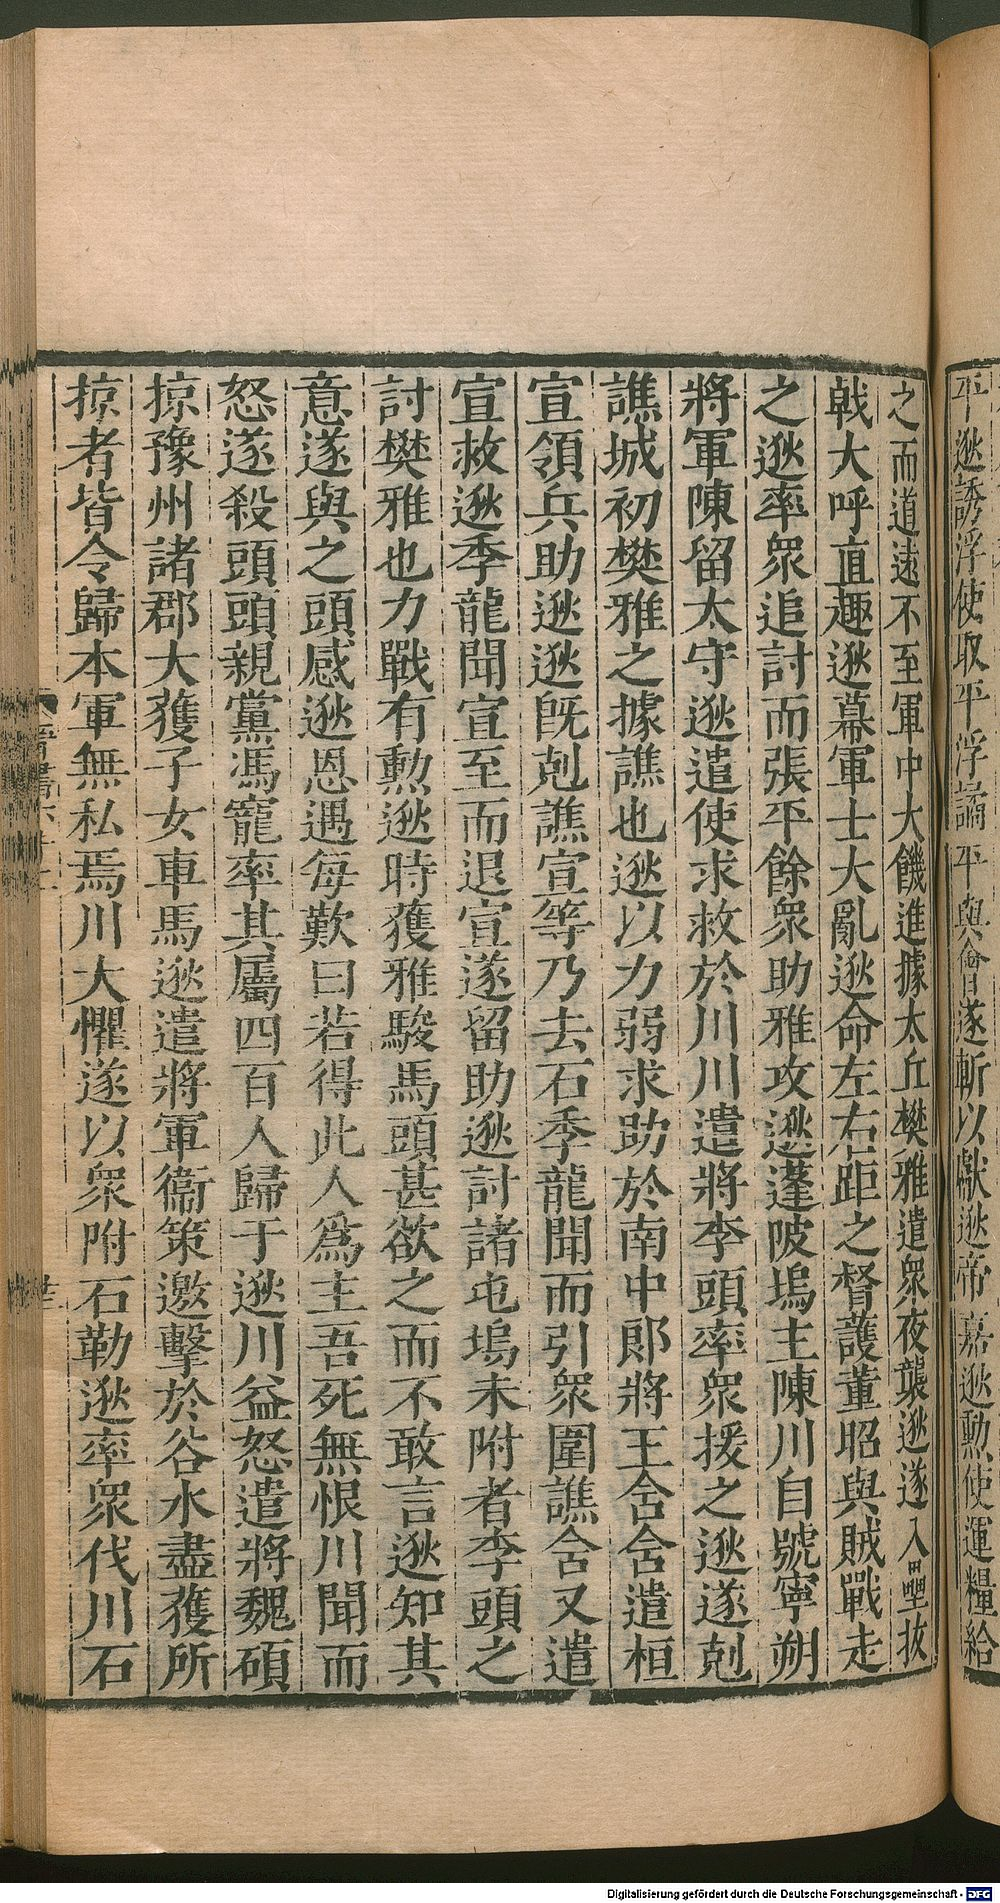 平逖誘浮使取平浮譎平與會遂斬以獻逖帝嘉逖勲使運糧給
之而道遠不至軍中大饑進據太丘樊雅遣衆夜襲逖遂入壘拔
戟大呼直趣逖幕軍士大亂逖命左右距之督護董昭與賊戰走
之逖率衆追討而張平餘衆助雅攻逖蓬陂塢主陳川自號寧朔
將軍陳留太守逖遣使求救於川川遣將李頭率衆援之逖遂剋
譙城初樊雅之據譙也逖以力弱求助於南中郎將王舍舍遣桓
宣領兵助逖逖旣剋譙宣等乃去石季龍聞而引衆圍譙舍又遣
宣救逖季龍聞宣至而退宣遂留助逖討諸屯塢未附者李頭之
討樊雅也力戰有勲逖時獲雅駿馬頭甚欲之而不敢言逖知其
意遂與之頭感逖恩遇每歎曰若得此人爲主吾死無恨川聞而
怒遂殺頭頭親黨馮寵率其屬四百人歸于逖川益怒遣將魏碩
掠豫州諸郡大獲子女車馬逖遣將軍衞策邀擊於谷水盡獲所
掠者皆令歸本軍無私焉川大懼遂以衆附石勒逖率衆伐川石
晉書